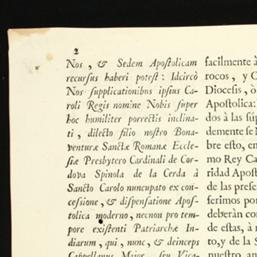 2
Nos, & Sedem Apostolicam
recursus haberi potest: Idcircò
Nos supplicationibus ipsius Ca-
roli Regis nomine Nobis super
hoc humiliter porrectis inclina-
ti, dilecto filio nostro Bona-
venturæ Sanctæ Romanæ Eccle-
siæ Presbytero Cardinali de Cor-
dova Spinola de la Cerda à
Sancto Carolo nuncupato ex con-
cessione, & dispensatione Apos-
tolica moderno, necnon pro tem-
pore existenti Patriarchæ In-
diarum, qui, nunc, & deinceps
Cappellanus Maior, seu Vica-
facilmente à
rocos, y C
Diocesis, ò
Apostolica:
dos à las sup
demente se N
bre esto, en
mo Rey Ca
ridad Apost
de las prese
ferimos por
deberàn con
de estas, à n
to, y de la S
nuestro an